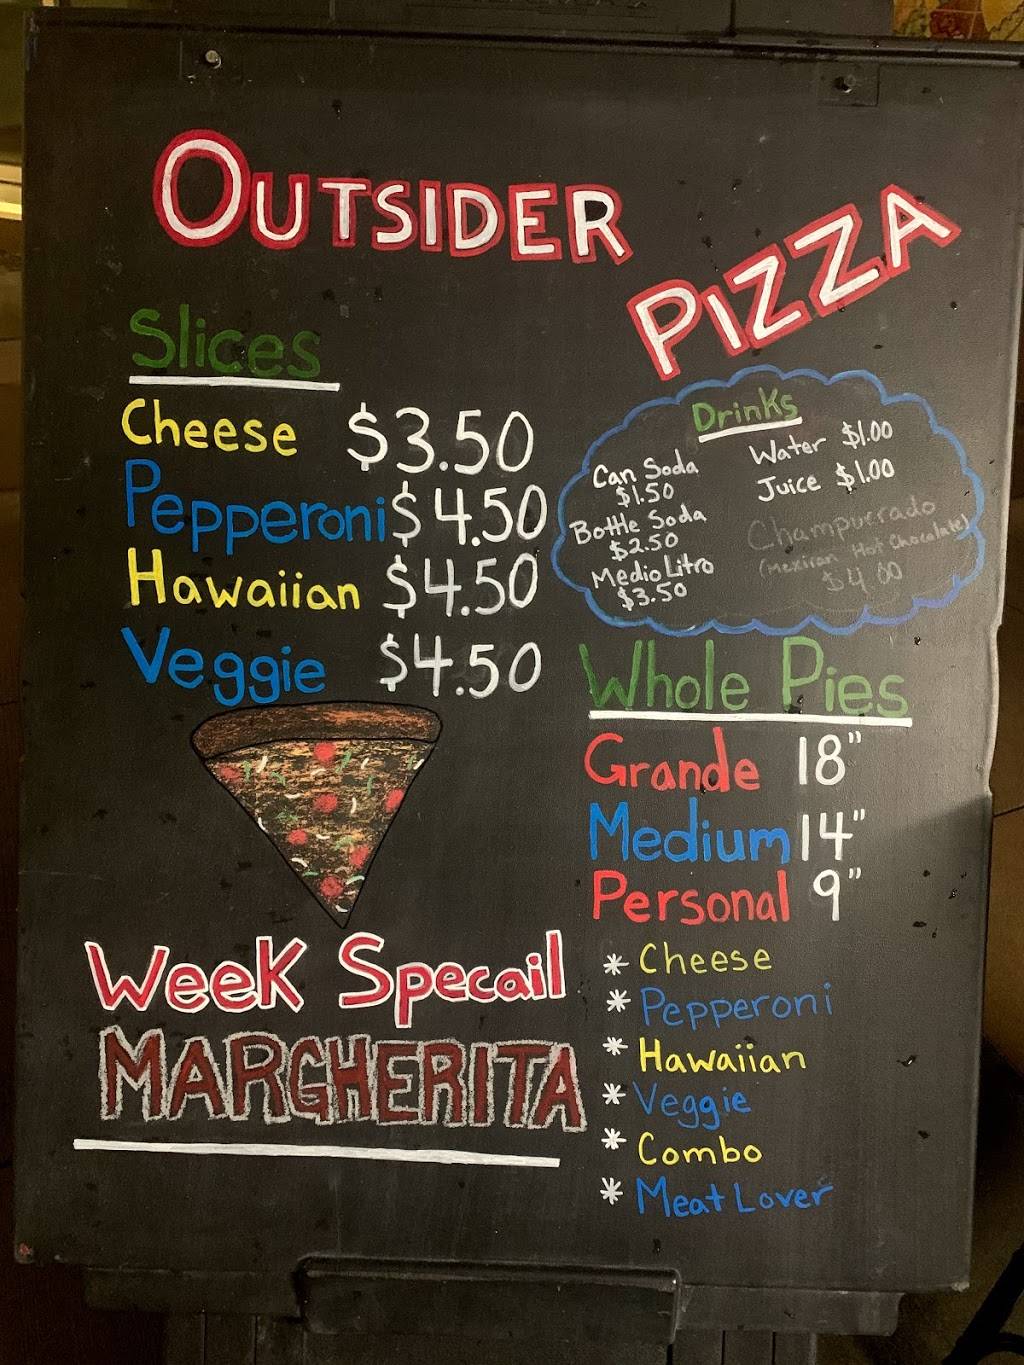 OUTSIDER
PIZZA
Slices
Cheese $3.50
Pepperoni $4.50
Hawaiian $4.50
Veggie $4.50
Drinks
Can Soda
$1.50
Bottle Soda
$2.50
Medio Litro
$3.50
Water $1.00
Juice $1.00
Champurrado
(Mexican Hot Chocolate)
$4.00
Whole Pies
Grande 18"
Medium 14"
Personal 9"
* Cheese
* Pepperoni
* Hawaiian
* Veggie
* Combo
* Meat Lover
Week Specail
MARGHERITA